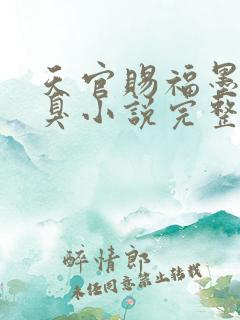 天官赐福墨
真小说完整
醉情郎
未经同意禁止转载